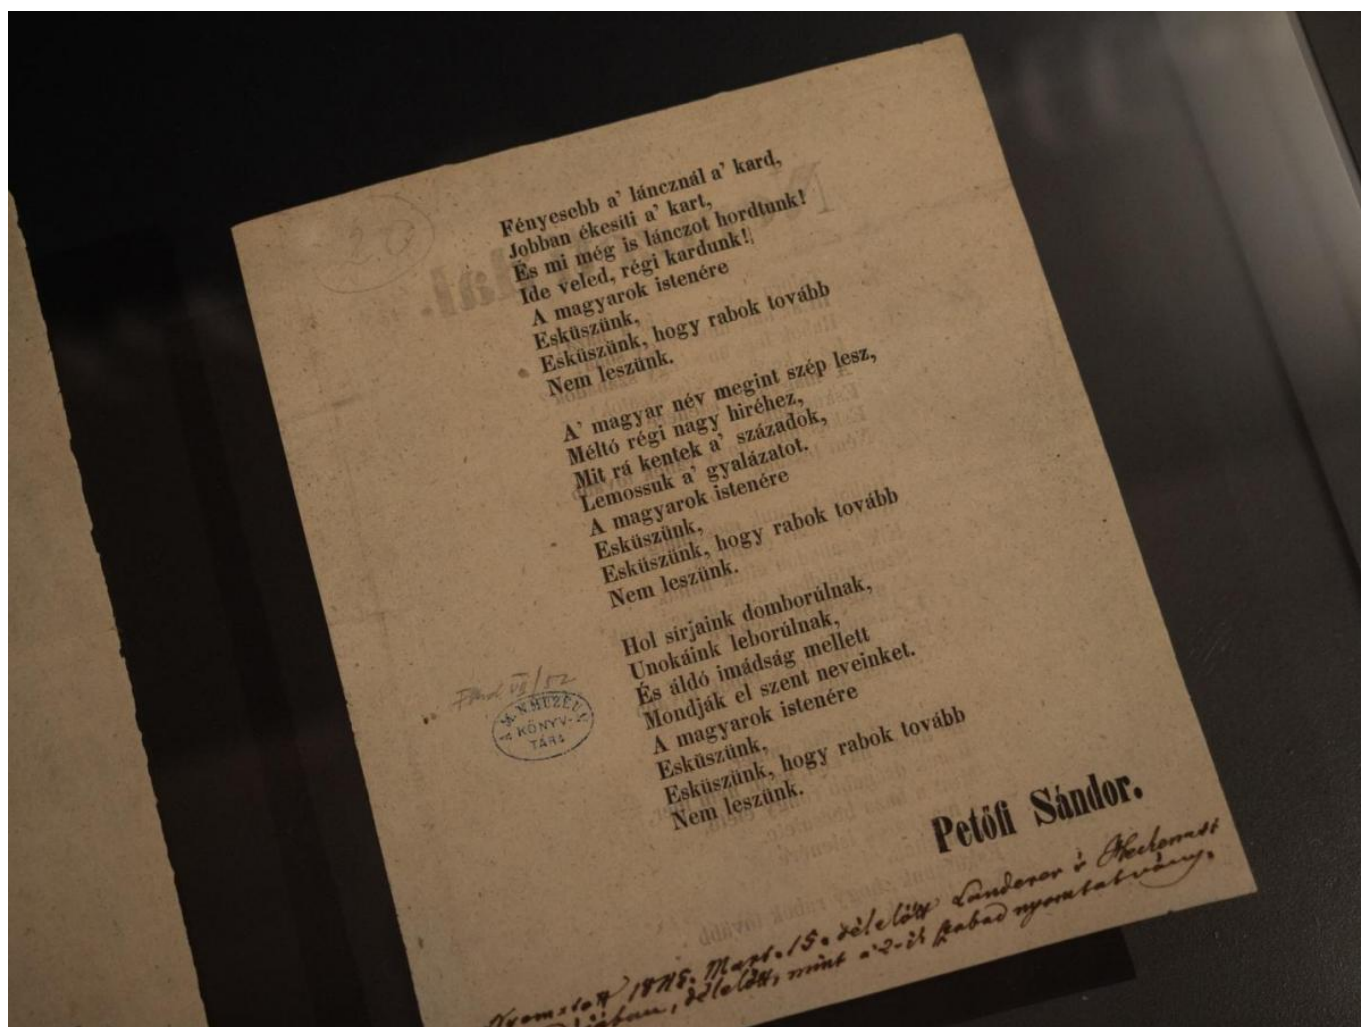 Fényesebb a’ láncznál a’ kard,
Jobban ékesiti a’ kart,
És mi még is lánczot hordtunk!
Ide veled, régi kardunk!
A magyarok istenére
Esküszünk,
Esküszünk, hogy rabok tovább
Nem leszünk.
A’ magyar név megint szép lesz,
Méltó régi nagy hiréhez,
Mit rá kentek a’ századok,
Lemossuk a’ gyalázatot.
A magyarok istenére
Esküszünk,
Esküszünk, hogy rabok tovább
Nem leszünk.
Hol sírjaink domborúlnak,
Unokáink leborúlnak,
És áldó imádság mellett
Mondják el szent neveinket.
A magyarok istenére
Esküszünk,
Esküszünk, hogy rabok tovább
Nem leszünk.
Petőfi Sándor.
A M. N. MUZEUM
KÖNYV-
TÁRA
1848. Mart. 15. délelőtt Landerer és Heckenast
délelőtt, mint a’ 2-ik szabad nyomtatvány.